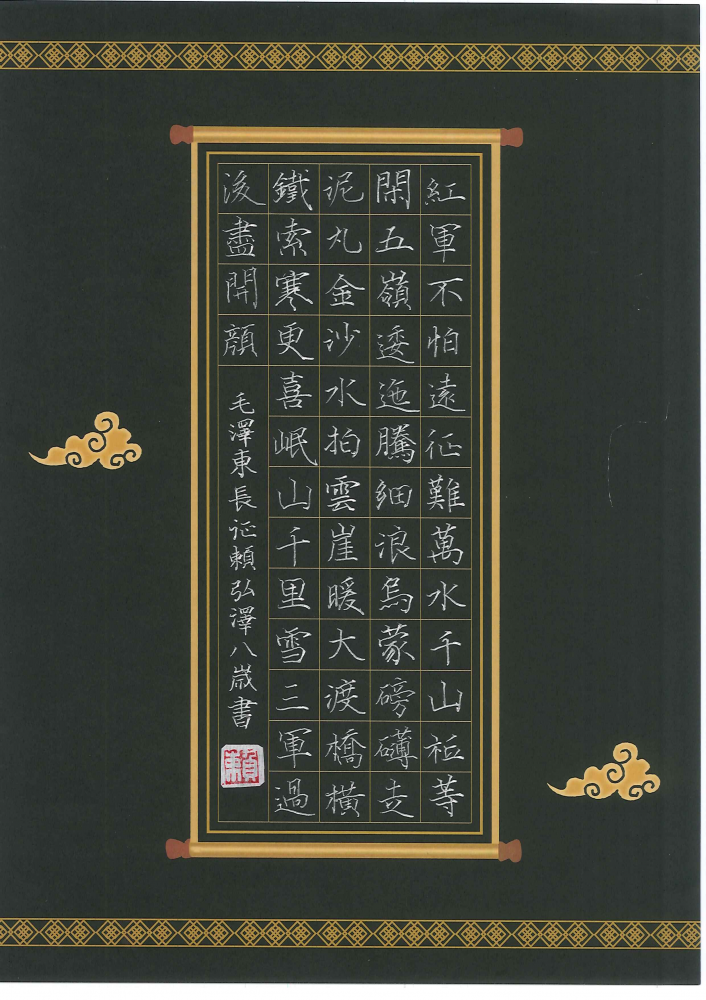 紅軍不怕遠征難萬水千山祗等
閑五嶺逶迤騰細浪烏蒙磅礴走
泥丸金沙水拍雲崖暖大渡橋橫
鐵索寒更喜岷山千里雪三軍過
後盡開顏
毛澤東長征賴弘澤八歲書
賴